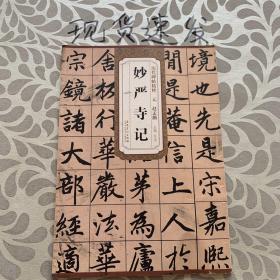 现货速发
妙严寺记
境也先是宋嘉熙
間是菴信上人於
茅為廬
板行華嚴法華
宗鏡諸大部經適